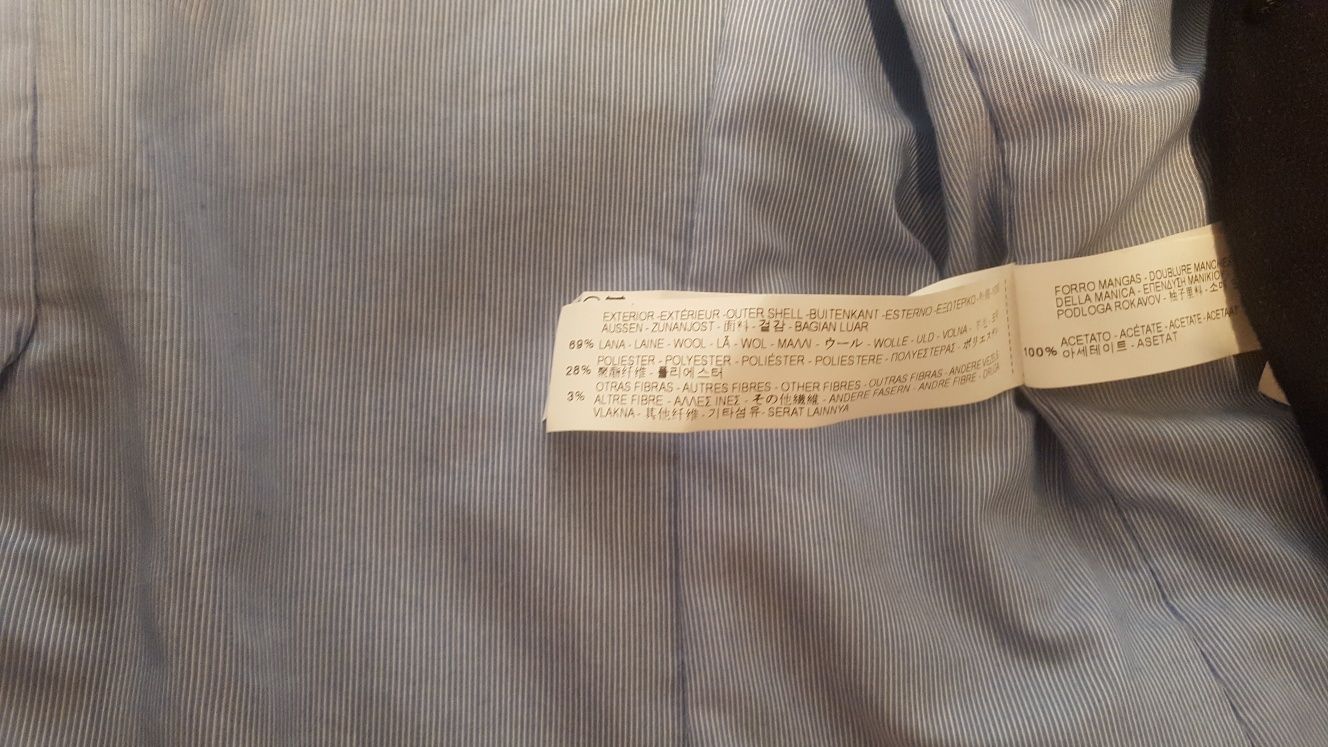 EXTERIOR -EXTÉRIEUR -OUTER SHELL -BUITENKANT -ESTERNO -ΕΞΩΤΕΡΙΚΟ-
AUSSEN - ZUNANJOST - 面料 - 겉감 - BAGIAN LUAR
69% LANA - LAINE - WOOL - LÃ - WOL - ΜΑΛΛΙ - ウール - WOLLE - ULD - VOLNA -
28% POLIESTER - POLYESTER - POLIÉSTER - POLIESTERE - ΠΟΛΥΕΣΤΕΡΑΣ - ポリエステル
聚酯纤维 - 폴리에스터
3% OTRAS FIBRAS - AUTRES FIBRES - OTHER FIBRES - OUTRAS FIBRAS - ANDERE VEZELS
ALTRE FIBRE - ΑΛΛΕΣ ΙΝΕΣ - その他繊維 - ANDERE FASERN - ANDRE FIBRE - DRUGA
VLAKNA - 其他纤维 - 기타섬유 - SERAT LAINNYA
FORRO MANGAS - DOUBLURE MANCHE
DELLA MANICA - ΕΠΕΝΔΥΣΗ ΜΑΝΙΚΙΟ
PODLOGA ROKAVOV - 袖子里料 - 소매
100% ACETATO - ACÉTATE - ACETATE - ACETAAT
아세테이트 - ASETAT